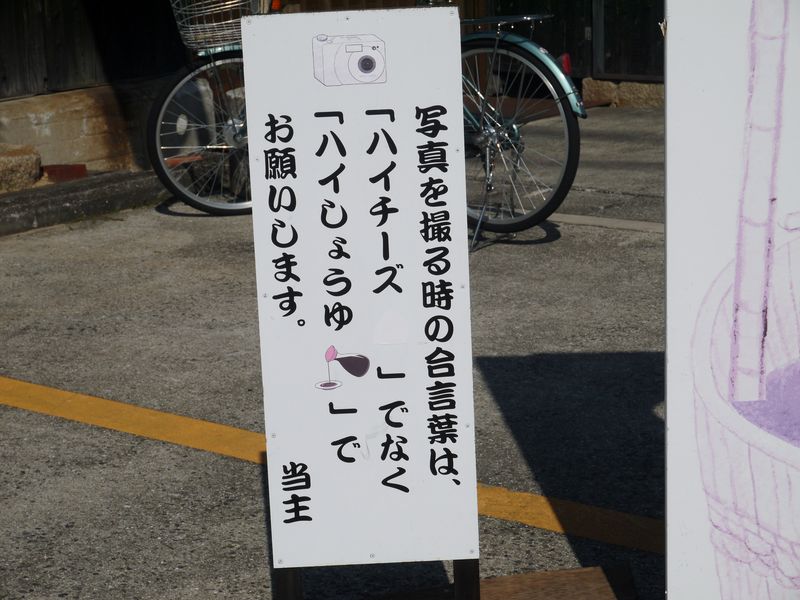 写真を撮る時の合言葉は、
「ハイチーズ 」でなく
「ハイしょうゆ 」で
お願いします。
当主